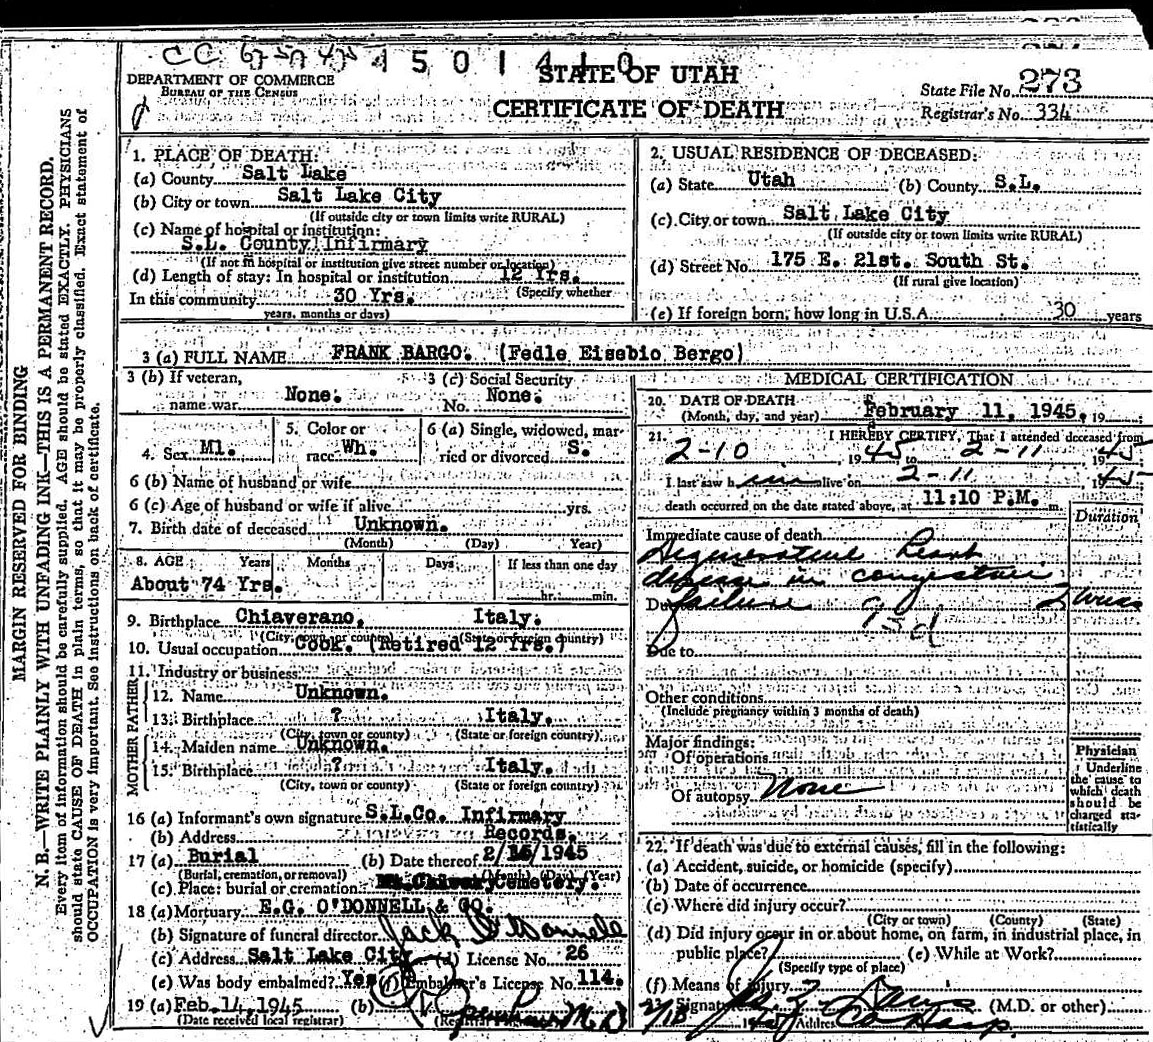 1501410
DEPARTMENT OF COMMERCE
BUREAU OF THE CENSUS
STATE OF UTAH
CERTIFICATE OF DEATH
State File No. 273
Registrar's No. 334
MARGIN RESERVED FOR BINDING
N. B.—WRITE PLAINLY WITH UNFADING INK—THIS IS A PERMANENT RECORD.
Every item of information should be carefully supplied. AGE should be stated EXACTLY. PHYSICIANS
should state CAUSE OF DEATH in plain terms, so that it may be properly classified. Exact statement of
OCCUPATION is very important. See instructions on back of certificate.
1. PLACE OF DEATH:
(a) County Salt Lake
(b) City or town Salt Lake City
(If outside city or town limits write RURAL)
(c) Name of hospital or institution:
S.L. County Infirmary
(If not in hospital or institution give street number or location)
(d) Length of stay: In hospital or institution 12 Yrs.
(Specify whether
In this community 30 Yrs.
years, months or days)
2. USUAL RESIDENCE OF DECEASED:
(a) State Utah (b) County S.L.
(c) City or town Salt Lake City
(If outside city or town limits write RURAL)
(d) Street No. 175 E. 21st. South St.
(If rural give location)
(e) If foreign born, how long in U.S.A. 30 years
3 (a) FULL NAME FRANK BARGO. (Fedle Eisebio Bergo)
3 (b) If veteran, name war None.
3 (c) Social Security No. None.
4. Sex Ml.
5. Color or race Wh.
6 (a) Single, widowed, married or divorced S.
6 (b) Name of husband or wife
6 (c) Age of husband or wife if alive yrs.
7. Birth date of deceased Unknown.
(Month) (Day) Year)
8. AGE Years Months Days If less than one day
About 74 Yrs. hr. min.
9. Birthplace Chiaverano, Italy.
(City, town, or county) (State or foreign country)
10. Usual occupation Cook. (Retired 12 Yrs.)
11. Industry or business
FATHER
12. Name Unknown.
13. Birthplace ? Italy.
(City, town or county) (State or foreign country)
MOTHER
14. Maiden name Unknown.
15. Birthplace ? Italy.
(City, town or county) (State or foreign country)
16 (a) Informant's own signature S.L.Co. Infirmary
(b) Address Records.
17 (a) Burial (b) Date thereof 2/ /1945
(Burial, cremation, or removal) (Month) (Day) (Year)
(c) Place: burial or cremation Mt. Calvary Cemetery.
18 (a) Mortuary E.G. O'DONNELL & CO.
(b) Signature of funeral director Jack O'Donnell
(c) Address Salt Lake City (d) License No. 26
(e) Was body embalmed? Yes (f) Embalmer's License No. 114.
19 (a) Feb. 14, 1945 (b) M.D.
(Date received local registrar)
MEDICAL CERTIFICATION
20. DATE OF DEATH
(Month, day, and year) February 11, 1945. 19
21. I HEREBY CERTIFY, That I attended deceased from
2-10, 1945 to 2-11 1945
I last saw him alive on 2-11 1945
death occurred on the date stated above, at 11:10 P.M. m.
Duration
Immediate cause of death
Degenerative heart
disease in congestive
Due failure
Due to
Other conditions
(Include pregnancy within 3 months of death)
Major findings:
Of operations
Of autopsy None
Physician
Underline
the cause to
which death
should be
charged sta-
tistically
22. If death was due to external causes, fill in the following:
(a) Accident, suicide, or homicide (specify)
(b) Date of occurrence
(c) Where did injury occur?
(City or town) (County) (State)
(d) Did injury occur in or about home, on farm, in industrial place, in
public place? (e) While at Work?
(Specify type of place)
(f) Means of injury
23. Signature (M.D. or other)
2/13 Address Co Hosp.